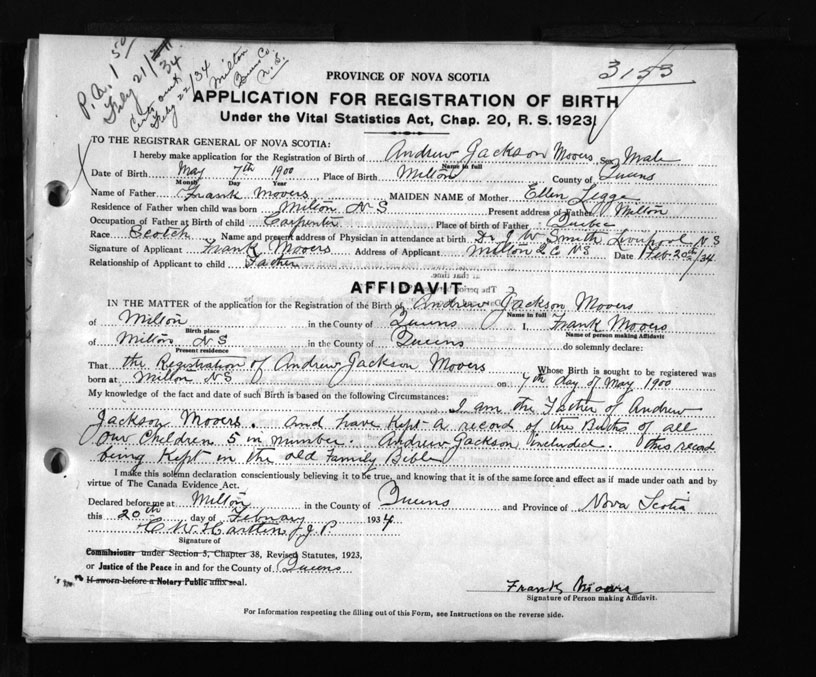 P. A. 1 50
Feby 21/34
Certs sent
Feby 22/34
Milton
Queens Co.
N. S.
3153
PROVINCE OF NOVA SCOTIA
APPLICATION FOR REGISTRATION OF BIRTH
Under the Vital Statistics Act, Chap. 20, R. S. 1923.
TO THE REGISTRAR GENERAL OF NOVA SCOTIA:
I hereby make application for the Registration of Birth of Andrew Jackson Moors, Sex Male
Name in full
Date of Birth May 7th 1900 Place of Birth Milton County of Queens
Month Day Year
Name of Father Frank Moors MAIDEN NAME of Mother Ellen Legge
Residence of Father when child was born Milton N S Present address of Father Milton
Occupation of Father at Birth of child Carpenter Place of birth of Father
Race Scotch Name and present address of Physician in attendance at birth Dr J. W Smith Liverpool N S
Signature of Applicant Frank Moors Address of Applicant Milton Q C N S Date Feb 20th/34
Relationship of Applicant to child Father
AFFIDAVIT
IN THE MATTER of the application for the Registration of the Birth of Andrew Jackson Moors
Name in full
of Milton in the County of Queens I, Frank Moors
Birth place Name of person making Affidavit
of Milton N S in the County of Queens do solemnly declare:
Present residence
That the Registration of Andrew Jackson Moors Whose Birth is sought to be registered was
born at Milton N S on 7th day of May 1900
My knowledge of the fact and date of such Birth is based on the following Circumstances: I am the Father of Andrew
Jackson Moors. And have kept a record of the Births of all
our Children 5 in number. Andrew Jackson included. this record
being kept in the old Family Bible
I make this solemn declaration conscientiously believing it to be true, and knowing that it is of the same force and effect as if made under oath and by
virtue of The Canada Evidence Act.
Declared before me at Milton in the County of Queens and Province of Nova Scotia
this 20th day of February 1934
W. Hartlen J. P
Signature of
Commissioner under Section 3, Chapter 38, Revised Statutes, 1923,
or Justice of the Peace in and for the County of Queens
If sworn before a Notary Public affix seal.
Frank Moors
Signature of Person making Affidavit.
For Information respecting the filling out of this Form, see Instructions on the reverse side.